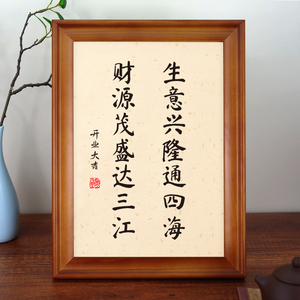 生意兴隆通四海
财源茂盛达三江
开业大吉